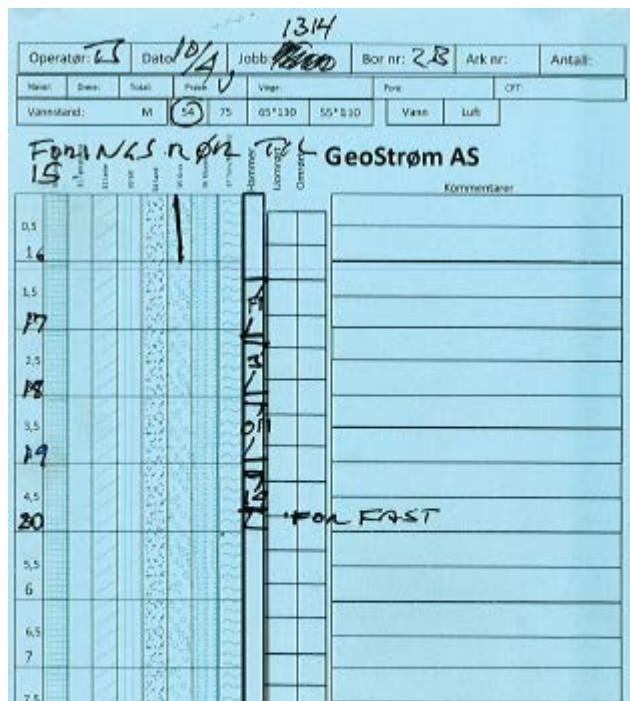 1314
Operatør: LS Dato 10/4 Jobb: Bor nr: 2B Ark nr: Antall:
Navn: Dreie: Total: Prøve V Vinge: Pore: CPT:
Vannstand: M 54 75 65*130 55*110 Vann Luft
FORINGSRØR TIL GeoStrøm AS
15 Hammer Omrørt Kommentarer
0,5
16
1,5
17
2,5
18
3,5
19
4,5
20 FOR FAST
5,5
6
6,5
7
7,5